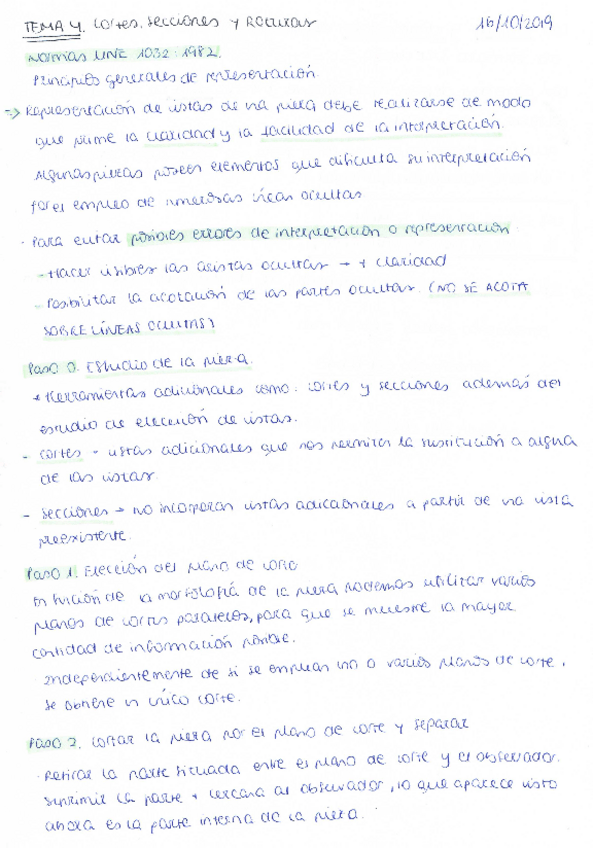 TEMA 4. Cortes, Secciones y Roturas 16/10/2019
Normas UNE 1032:1982.
Principios generales de representación.
→ Representación de vistas de una pieza debe realizarse de modo
que prime la claridad y la facilidad de la interpretación.
Algunas piezas poseen elementos que dificulta su interpretación
por el empleo de numerosas líneas ocultas
· Para evitar posibles errores de interpretación o representación
- Hacer visibles las aristas ocultas → + claridad
- Posibilitar la acotación de las partes ocultas. (NO SE ACOTA
SOBRE LÍNEAS OCULTAS)
Paso 0. Estudio de la pieza.
* Herramientas adicionales como: cortes y secciones además del
estudio de elección de vistas.
- cortes → vistas adicionales que nos permiten la sustitución a alguna
de las vistas.
- secciones → no incorporan vistas adicionales a partir de una vista
preexistente.
Paso 1. Elección del plano de corte
En función de la morfología de la pieza podemos utilizar varios
planos de cortes paralelos, para que se muestre la mayor
cantidad de información posible.
· Independientemente de si se emplean uno o varios planos de corte,
se obtiene un único corte.
Paso 2. Cortar la pieza por el plano de corte y separar
· Retirar la parte situada entre el plano de corte y el observador.
Suprimir la parte + cercana al observador, lo que aparece visto
ahora es la parte interna de la pieza.